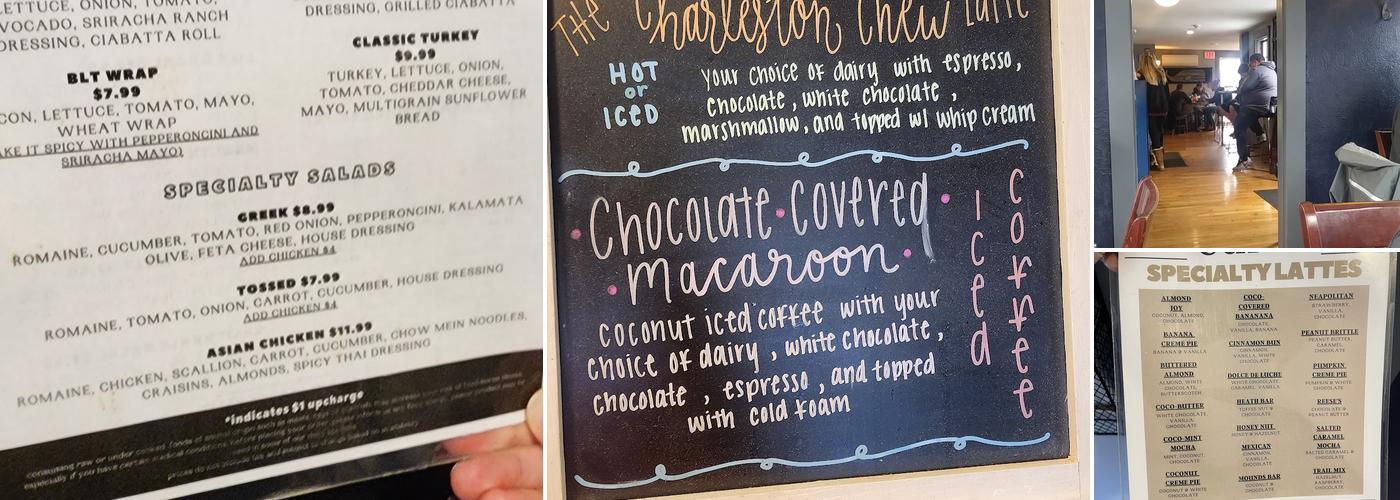 LETTUCE, ONION, TOMATO,
VOCADO, SRIRACHA RANCH
DRESSING, CIABATTA ROLL
BLT WRAP
$7.99
CON, LETTUCE, TOMATO, MAYO,
WHEAT WRAP
AKE IT SPICY WITH PEPPERONCINI AND
SRIRACHA MAYO)
DRESSING, GRILLED CIABATTA
CLASSIC TURKEY
$9.99
TURKEY, LETTUCE, ONION,
TOMATO, CHEDDAR CHEESE,
MAYO, MULTIGRAIN SUNFLOWER
BREAD
SPECIALTY SALADS
GREEK $8.99
ROMAINE, CUCUMBER, TOMATO, RED ONION, PEPPERONCINI, KALAMATA
OLIVE, FETA CHEESE, HOUSE DRESSING
ADD CHICKEN $4
TOSSED $7.99
ROMAINE, TOMATO, ONION, CARROT, CUCUMBER, HOUSE DRESSING
ADD CHICKEN $4
ASIAN CHICKEN $11.99
ROMAINE, CHICKEN, SCALLION, CARROT, CUCUMBER, CHOW MEIN NOODLES,
CRAISINS, ALMONDS, SPICY THAI DRESSING
*indicates $1 upcharge
consuming raw or under cooked foods
especially if you have certain medical conditions
THE Charleston Chew Latte
HOT
or
ICED
Your choice of dairy with espresso,
chocolate, white chocolate,
marshmallow, and topped w/ whip cream
Chocolate Covered
Macaroon
Iced
Coffee
coconut iced coffee with your
choice of dairy, white chocolate,
chocolate, espresso, and topped
with cold foam
SPECIALTY LATTES
ALMOND
JOY
COCONUT, ALMOND,
CHOCOLATE
BANANA
CREME PIE
BANANA & VANILLA
BUTTERED
ALMOND
ALMOND, WHITE
CHOCOLATE,
BUTTERSCOTCH
COCO-BUTTER
WHITE CHOCOLATE,
VANILLA,
CHOCOLATE
COCO-MINT
MOCHA
MINT, COCONUT,
CHOCOLATE
COCONUT
CREME PIE
COCONUT & WHITE
CHOCOLATE
COCO-
COVERED
BANANANA
CHOCOLATE,
VANILLA, BANANA
CINNAMON BUN
CINNAMON,
VANILLA, WHITE
CHOCOLATE
DOLCE DE LUCHE
WHITE CHOCOLATE,
CARAMEL, VANILLA
HEATH BAR
TOFFEE NUT &
CHOCOLATE
HONEY NUT
HONEY & HAZELNUT
MEXICAN
CINNAMON,
VANILLA,
CHOCOLATE
MOUNDS BAR
COCONUT &
CHOCOLATE
NEAPOLITAN
STRAWBERRY,
VANILLA,
CHOCOLATE
PEANUT BRITTLE
PEANUT BUTTER,
CARAMEL,
CHOCOLATE
PUMPKIN
CREME PIE
PUMPKIN & WHITE
CHOCOLATE
REESE'S
CHOCOLATE &
PEANUT BUTTER
SALTED
CARAMEL
MOCHA
SALTED CARAMEL &
CHOCOLATE
TRAIL MIX
HAZELNUT,
RASPBERRY,
CHOCOLATE